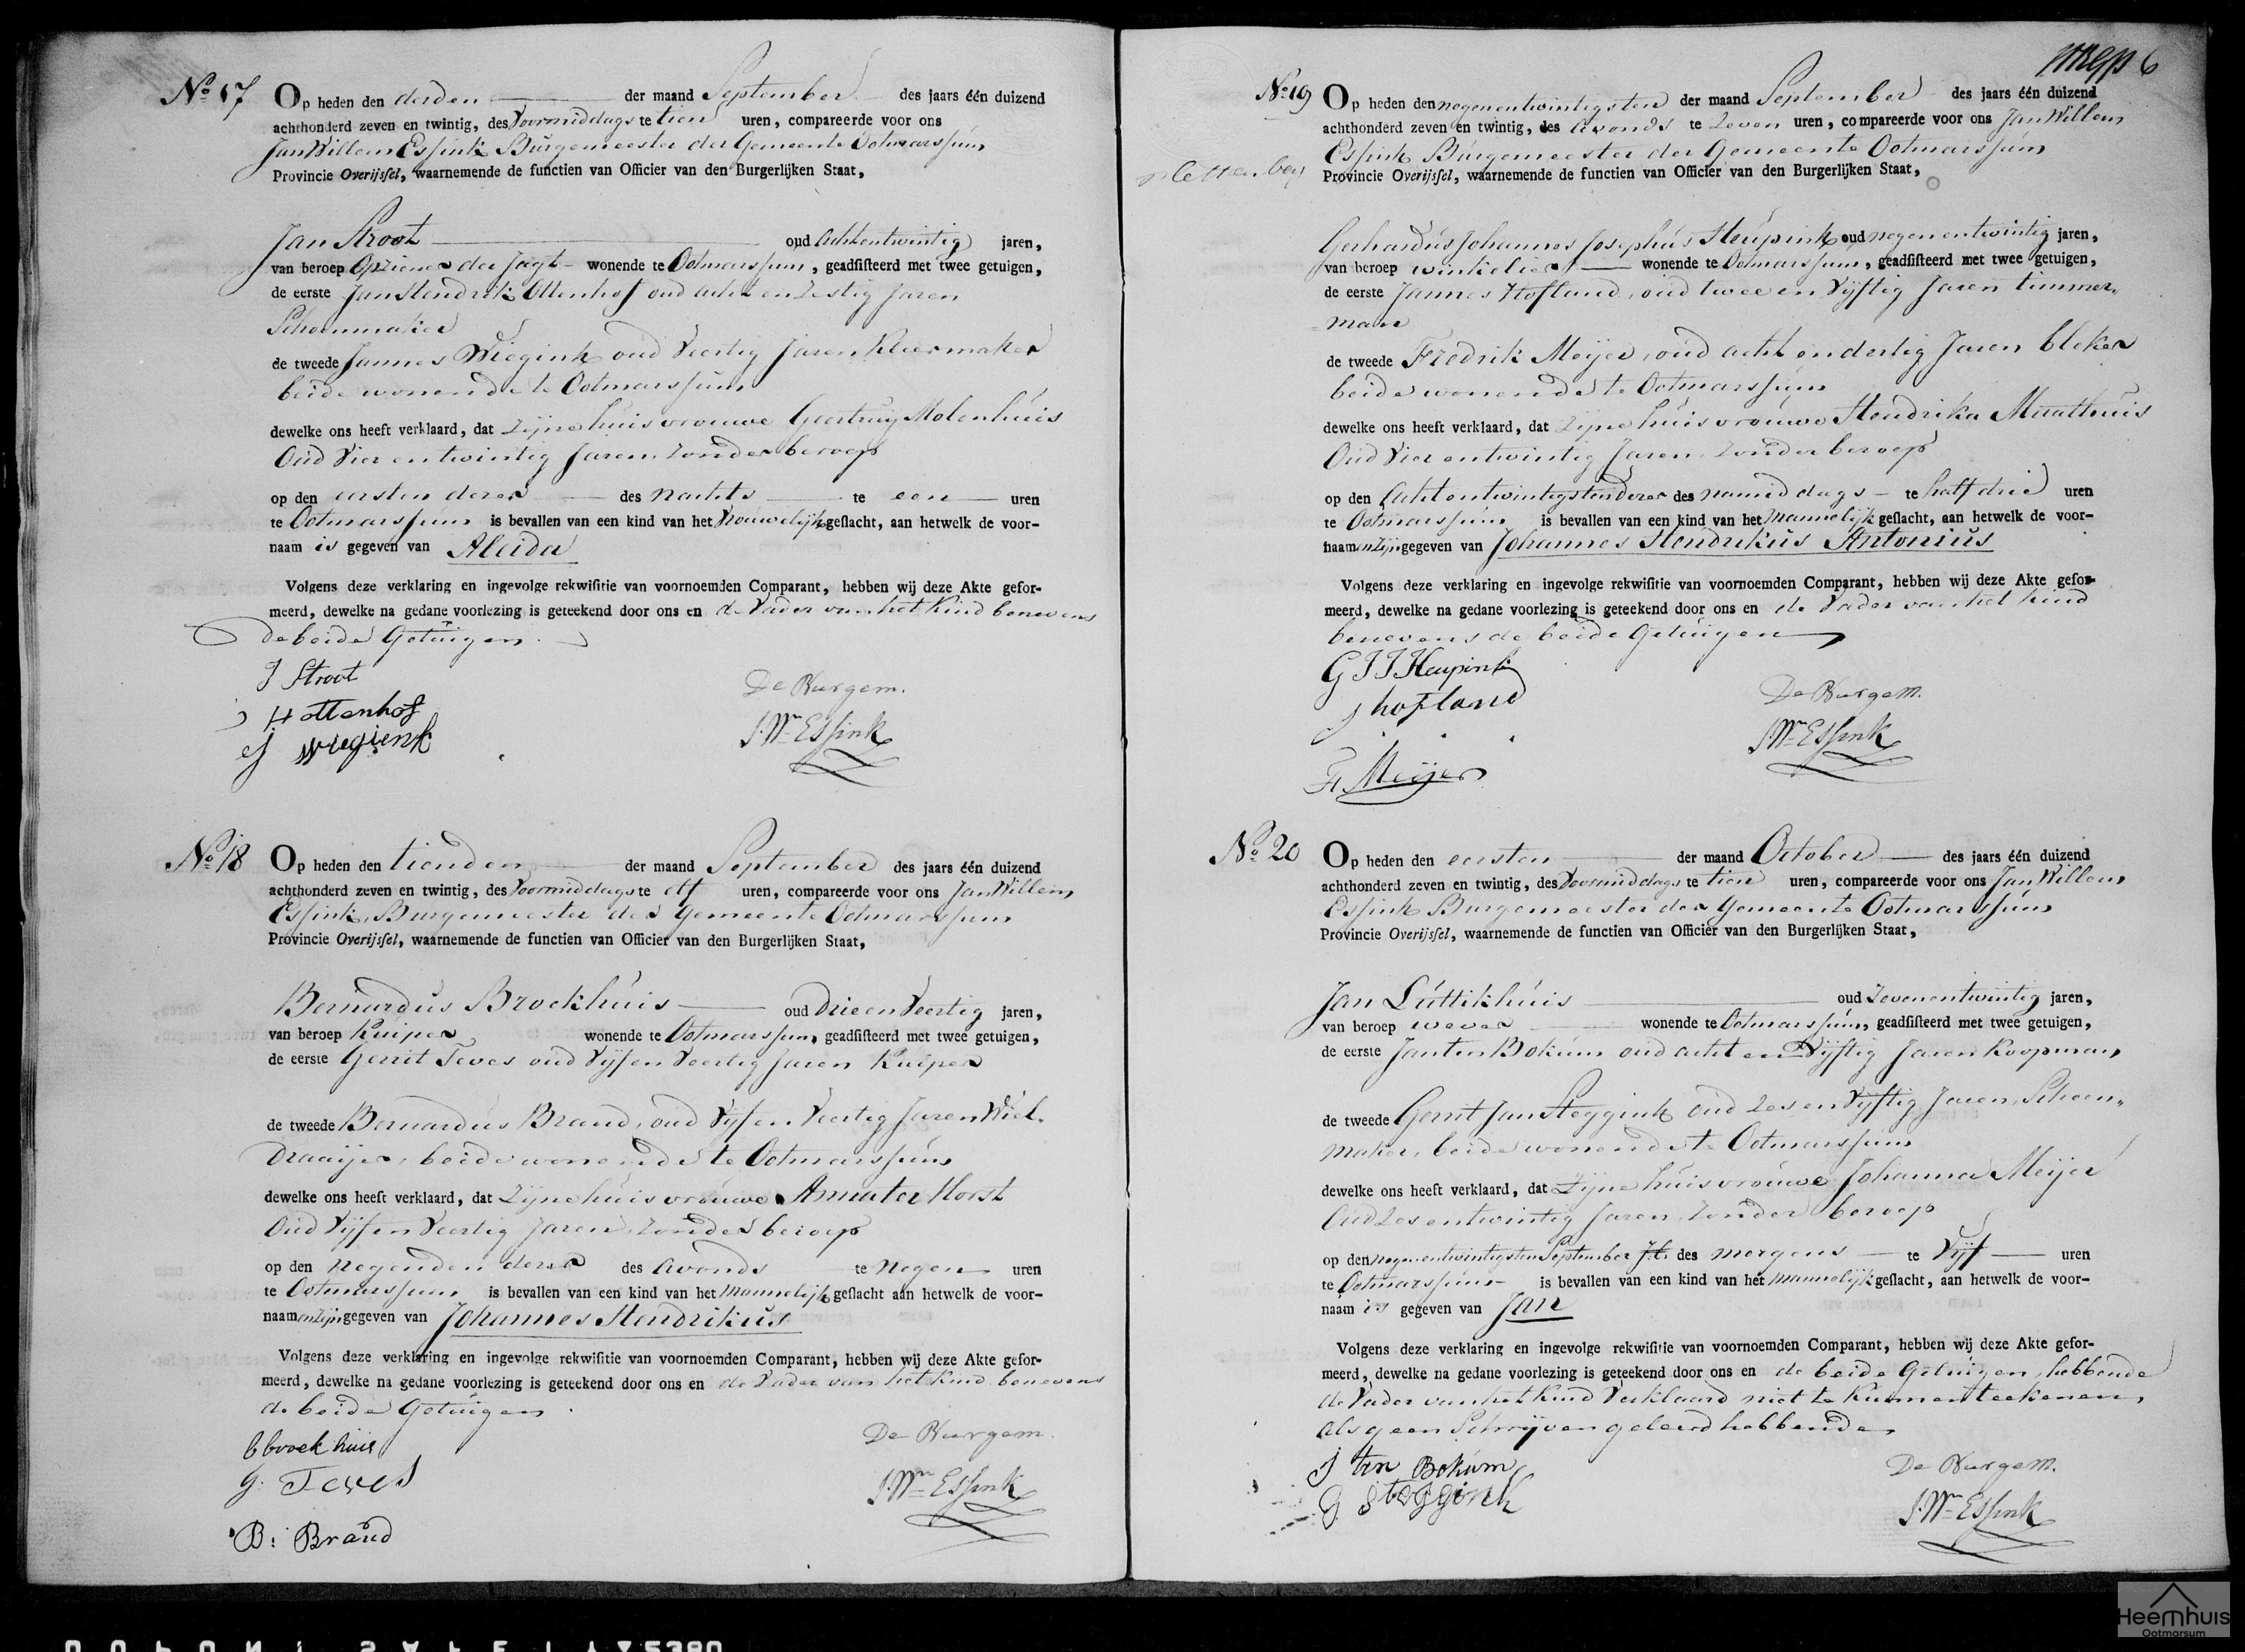 No 17 Op heden den derden der maand September des jaars één duizend
achthonderd zeven en twintig, des Voormiddags te tien uren, compareerde voor ons
Jan Willem Essink Burgemeester der Gemeente Ootmarssum
Provincie Overijssel, waarnemende de functien van Officier van den Burgerlijken Staat,
Jan Stroot oud achtentwintig jaren,
van beroep Opziener der Jagt wonende te Ootmarssum, geadsisteerd met twee getuigen,
de eerste Jan Hendrik Ottenhof oud acht en Zestig Jaren
Schoenmaker
de tweede Jannes Wiegink oud Veertig Jaren Kleermaker
beide wonende te Ootmarssum
dewelke ons heeft verklaard, dat zijne huisvrouwe Geertruij Molenhuis
Oud Vier entwintig Jaren, zonder beroep
op den eersten dezer des nachts te een uren
te Ootmarssum is bevallen van een kind van het Vrouwelijk geslacht, aan hetwelk de voor-
naam is gegeven van Aleida
Volgens deze verklaring en ingevolge rekwisitie van voornoemden Comparant, hebben wij deze Akte gefor-
meerd, dewelke na gedane voorlezing is geteekend door ons en de Vader van het Kind benevens
de beide Getuigen.
J Stroot
J H ottenhof
J wiegienk
De Burgem.
J. Wm Essink
No 18 Op heden den tienden der maand September des jaars één duizend
achthonderd zeven en twintig, des Voormiddags te elf uren, compareerde voor ons Jan Willem
Essink, Burgemeester der Gemeente Ootmarssum
Provincie Overijssel, waarnemende de functien van Officier van den Burgerlijken Staat,
Bernardus Broekhuis oud Drie en Veertig jaren,
van beroep Kuiper wonende te Ootmarssum, geadsisteerd met twee getuigen,
de eerste Gerrit Teves oud Vijf en Veertig Jaren Kuiper
de tweede Bernardus Brand, oud Vijf en Veertig Jaren Wiel-
draaijer, beide wonende te Ootmarssum
dewelke ons heeft verklaard, dat Zijne huisvrouwe Anna ter Horst
Oud Vijf en Veertig Jaren, zonder beroep
op den negenden dezer des Avonds te negen uren
te Ootmarssum is bevallen van een kind van het Mannelijk geslacht aan hetwelk de voor-
naamen zijn gegeven van Johannes Hendrikus
Volgens deze verklaring en ingevolge rekwisitie van voornoemden Comparant, hebben wij deze Akte gefor-
meerd, dewelke na gedane voorlezing is geteekend door ons en de Vader van het Kind benevens
de beide Getuigen.
b broekhuis
G. Teves
B: Brand
De Burgem.
J. Wm Essink
6
No 19 Op heden den negenentwintigsten der maand September des jaars één duizend
achthonderd zeven en twintig, des Avonds te Zeven uren, compareerde voor ons Jan Willem
Essink Burgemeester der Gemeente Ootmarssum
Provincie Overijssel, waarnemende de functien van Officier van den Burgerlijken Staat,
Gerhardus Johannes Josephus Heupink oud negenentwintig jaren,
van beroep winkelier wonende te Ootmarssum, geadsisteerd met twee getuigen,
de eerste Jannes Hofland, oud twee en Vijftig Jaren timmer-
man
de tweede Fredrik Meijer, oud acht en dertig Jaren bleker
beide wonende te Ootmarssum
dewelke ons heeft verklaard, dat Zijne huisvrouwe Hendrika Maathuis
Oud Vier entwintig Jaren, Zonder beroep
op den Achtentwintigsten dezer des namiddags te half drie uren
te Ootmarssum is bevallen van een kind van het Mannelijk geslacht, aan hetwelk de voor-
naamen zijn gegeven van Johannes Hendrikus Antonius
Volgens deze verklaring en ingevolge rekwisitie van voornoemden Comparant, hebben wij deze Akte gefor-
meerd, dewelke na gedane voorlezing is geteekend door ons en de Vader van het Kind
benevens de beide Getuigen
G J J Heupink
J hofland
F. Meijer
De Burgem.
J. Wm Essink
No 20 Op heden den eersten der maand October des jaars één duizend
achthonderd zeven en twintig, des Voormiddags te tien uren, compareerde voor ons Jan Willem
Essink Burgemeester der Gemeente Ootmarssum
Provincie Overijssel, waarnemende de functien van Officier van den Burgerlijken Staat,
Jan Luttikhuis oud Zevenentwintig jaren,
van beroep wever wonende te Ootmarssum, geadsisteerd met twee getuigen,
de eerste Jan ten Bokum oud acht en Vijftig Jaren Koopman,
de tweede Gerrit Jan Steggink oud Zes en Vijftig Jaren, Schoen-
maker, beide wonende te Ootmarssum
dewelke ons heeft verklaard, dat Zijne huisvrouwe Johanna Meijer
Oud Zes entwintig Jaren, Zonder beroep
op den negenentwintigsten September J.l. des morgens te Vijf uren
te Ootmarssum is bevallen van een kind van het Mannelijk geslacht, aan hetwelk de voor-
naam is gegeven van Jan
Volgens deze verklaring en ingevolge rekwisitie van voornoemden Comparant, hebben wij deze Akte gefor-
meerd, dewelke na gedane voorlezing is geteekend door ons en de beide Getuigen, hebbende
de Vader van het Kind Verklaard niet te kunnen teekenen,
als geen Schrijven geleerd hebbende
J ten Bokum
G steggink
De Burgem.
J. Wm Essink
Heemhuis
Ootmarsum